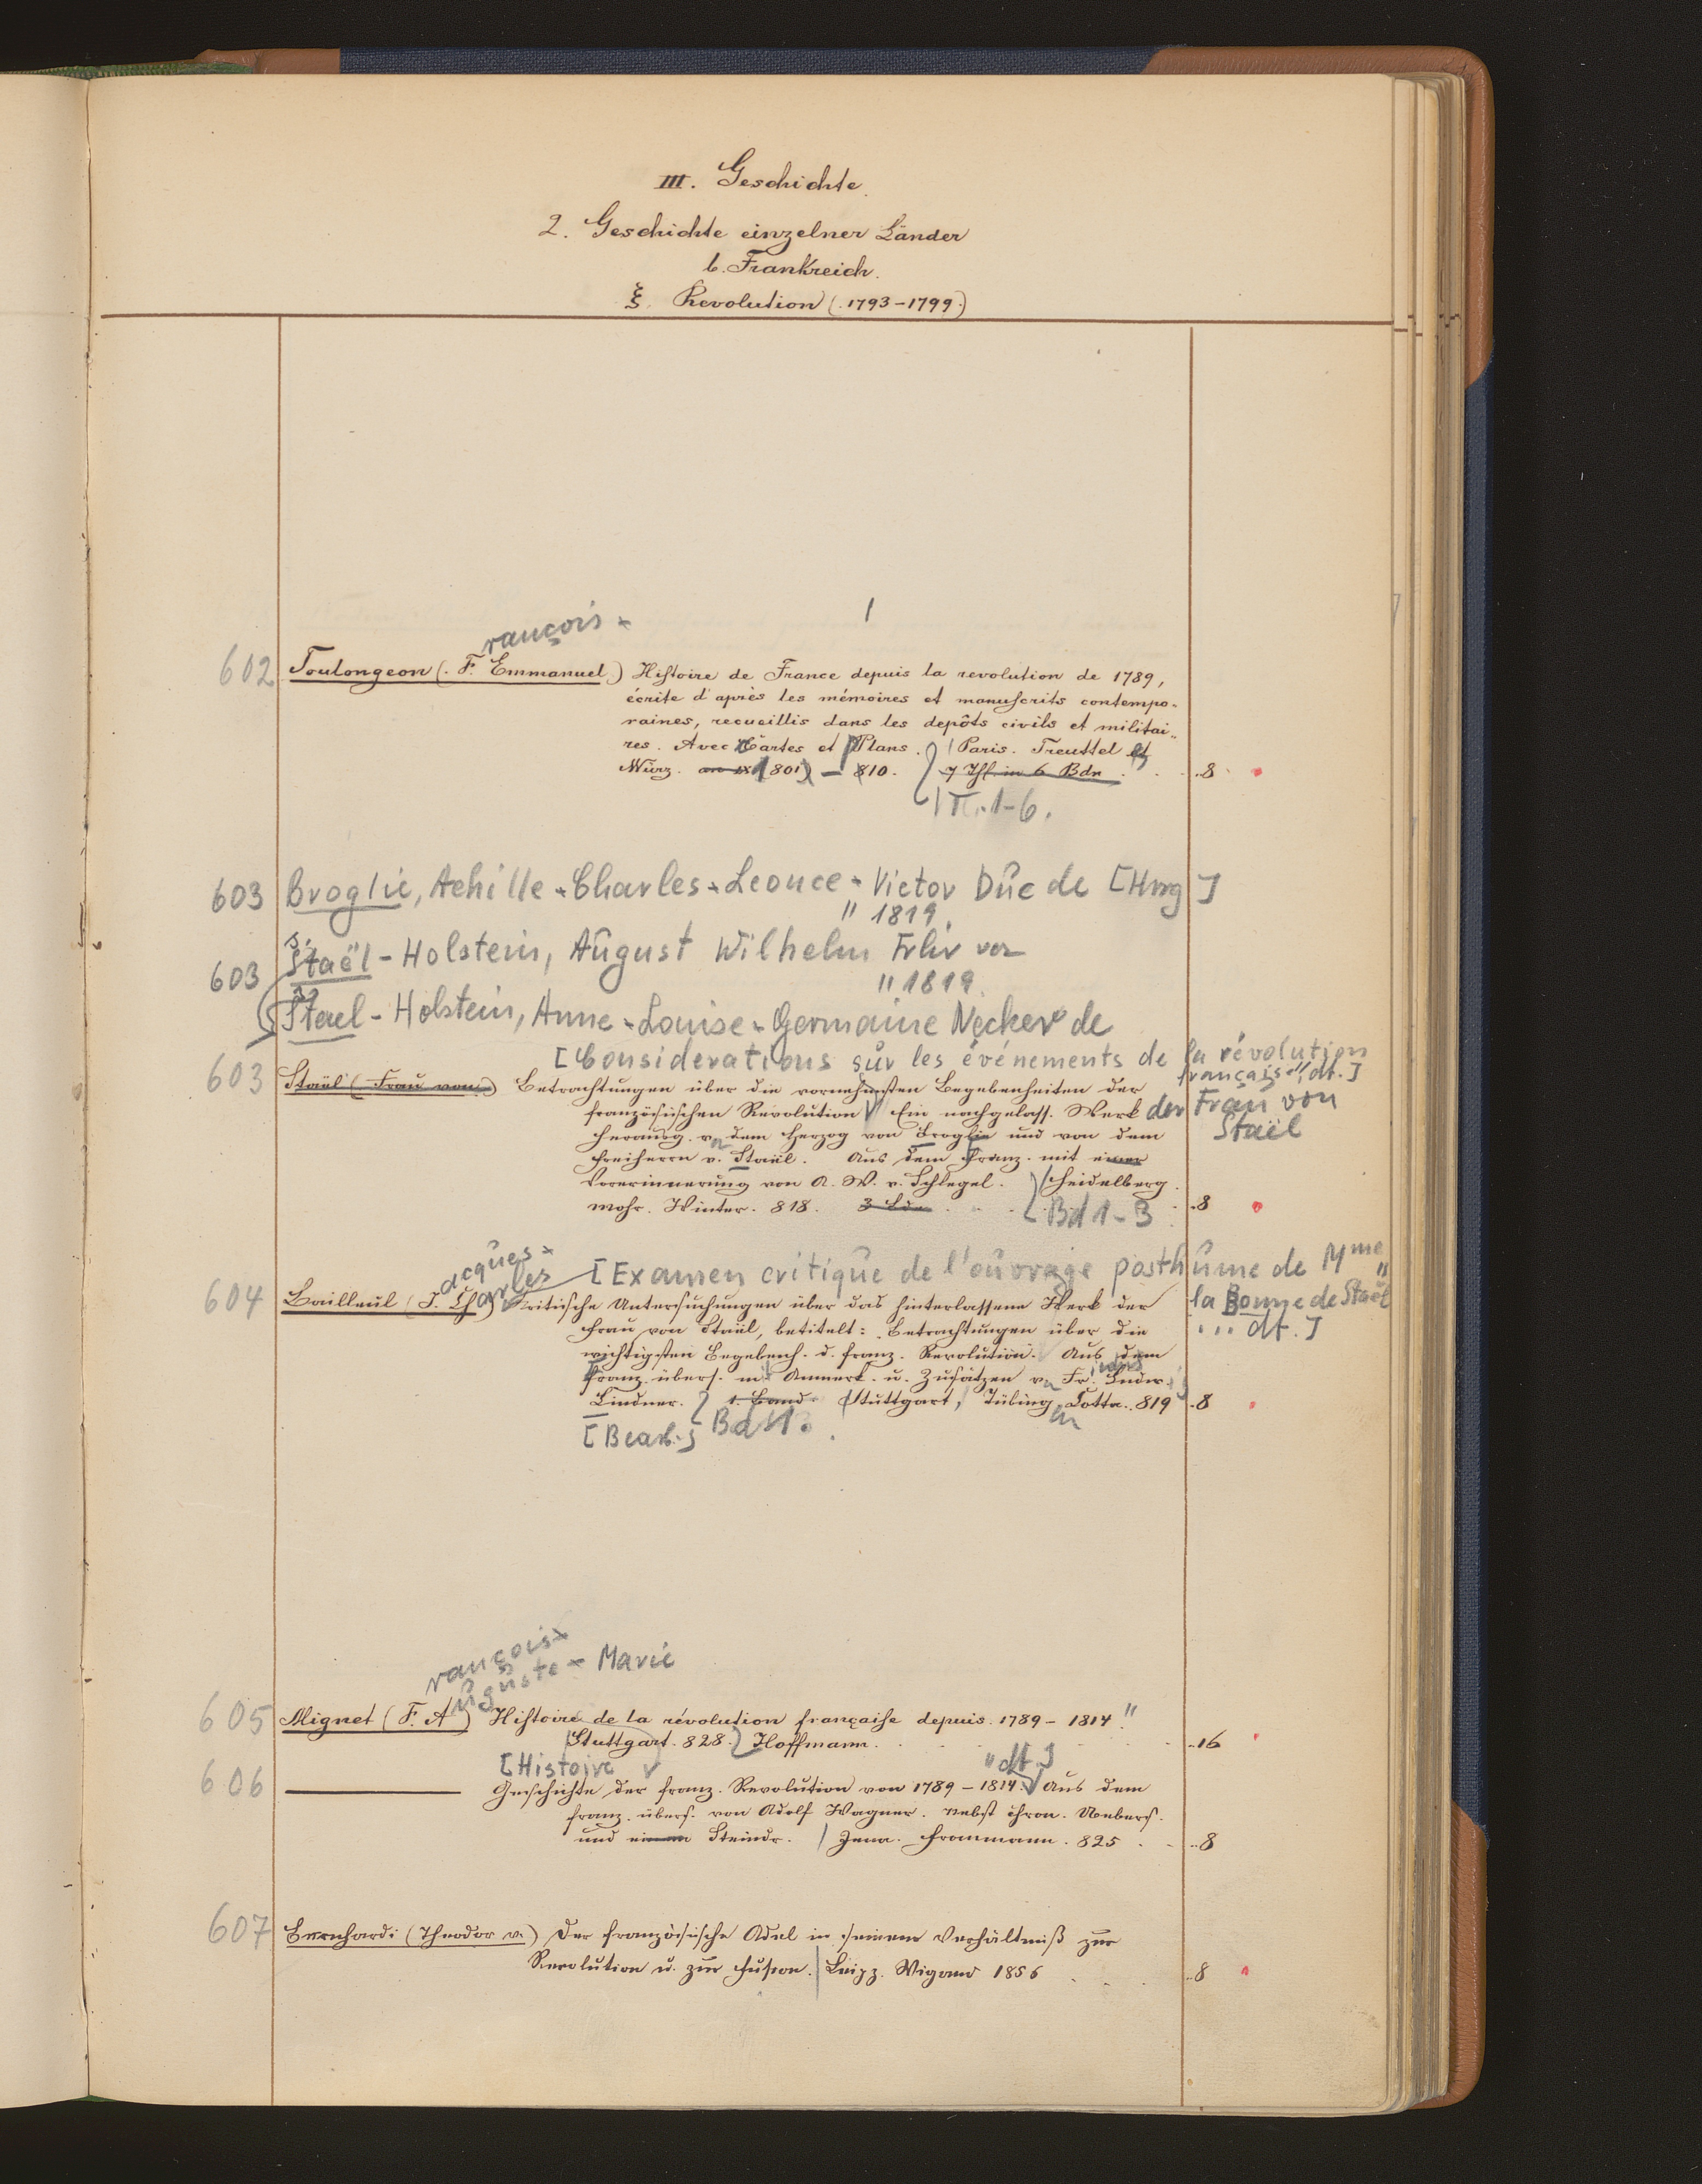 III. Geschichte.
2. Geschichte einzelner Länder
b. Frankreich.
ξ. Revolution (.1793–1799.)
rançois-
602 Toulongeon (. F. Emmanuel.) Histoire de France depuis la revolution de 1789,
écrite d'après les mémoires et manuscrits contempo-
raines, recueillis dans les depôts civils et militai-
res. Avec Cartes et Plans. Paris. Treuttel et
Würz. an IX (801) – 810. 7 Thl. in 6 Bdn. 8
T. 1-6.
603 Broglie, Achille-Charles-Leonce-Victor Duc de [Hrsg]
" 1819.
603 Staël-Holstein, August Wilhelm Frhr von
" 1819.
Stael-Holstein, Anne-Louise-Germaine Necker de
[Considerations sur les événements de la révolution
française", dt.]
603 Staël (Frau von) Betrachtungen über die vornehmsten Begebenheiten der
französischen Revolution Ein nachgelass. Werk der Frau von
Staël
herausg. v. dem Herzog von Broglie und von dem
Freiherrn v. Staël. Aus dem Franz. mit einer
Vorerinnerung von A. W. v. Schlegel. Heidelberg.
Mohr. Winter. 818. 3 Bde. 8
Bd 1-3
acques-
[Examen critique de l'ouvrage posthume de Mme
la Bonne de Staël
... dt.]
604 Bailleul (J. Charles) Kritische Untersuchungen über das hinterlassene Werk der
Frau von Staël, betitelt: Betrachtungen über die
wichtigsten Begebenh. d. franz. Revolution. Aus dem
Franz. übers. mit Anmerk. u. Zusätzen v. Fr. Ludw.
Lindner. 1. Band. Stuttgart, Tübing. Cotta. 819 8
[Bearb.] Bd 1.
rançois-
uguste-Marie
605 Mignet (F. A) Histoire de la révolution française depuis 1789–1814."
Stuttgart. 828. Hoffmann. 16
[Histoire " dt.]
606 Geschichte der franz. Revolution von 1789–1814. Aus dem
franz. übers. von Adolf Wagner. Nebst chron. Uebers.
und einem Steindr. Jena. Frommann. 825 8
607 Bernhardi (Theodor v.) Der französische Adel in seinem Verhältniß zur
Revolution u. zur Fusion. Leipz. Wigand 1856 8